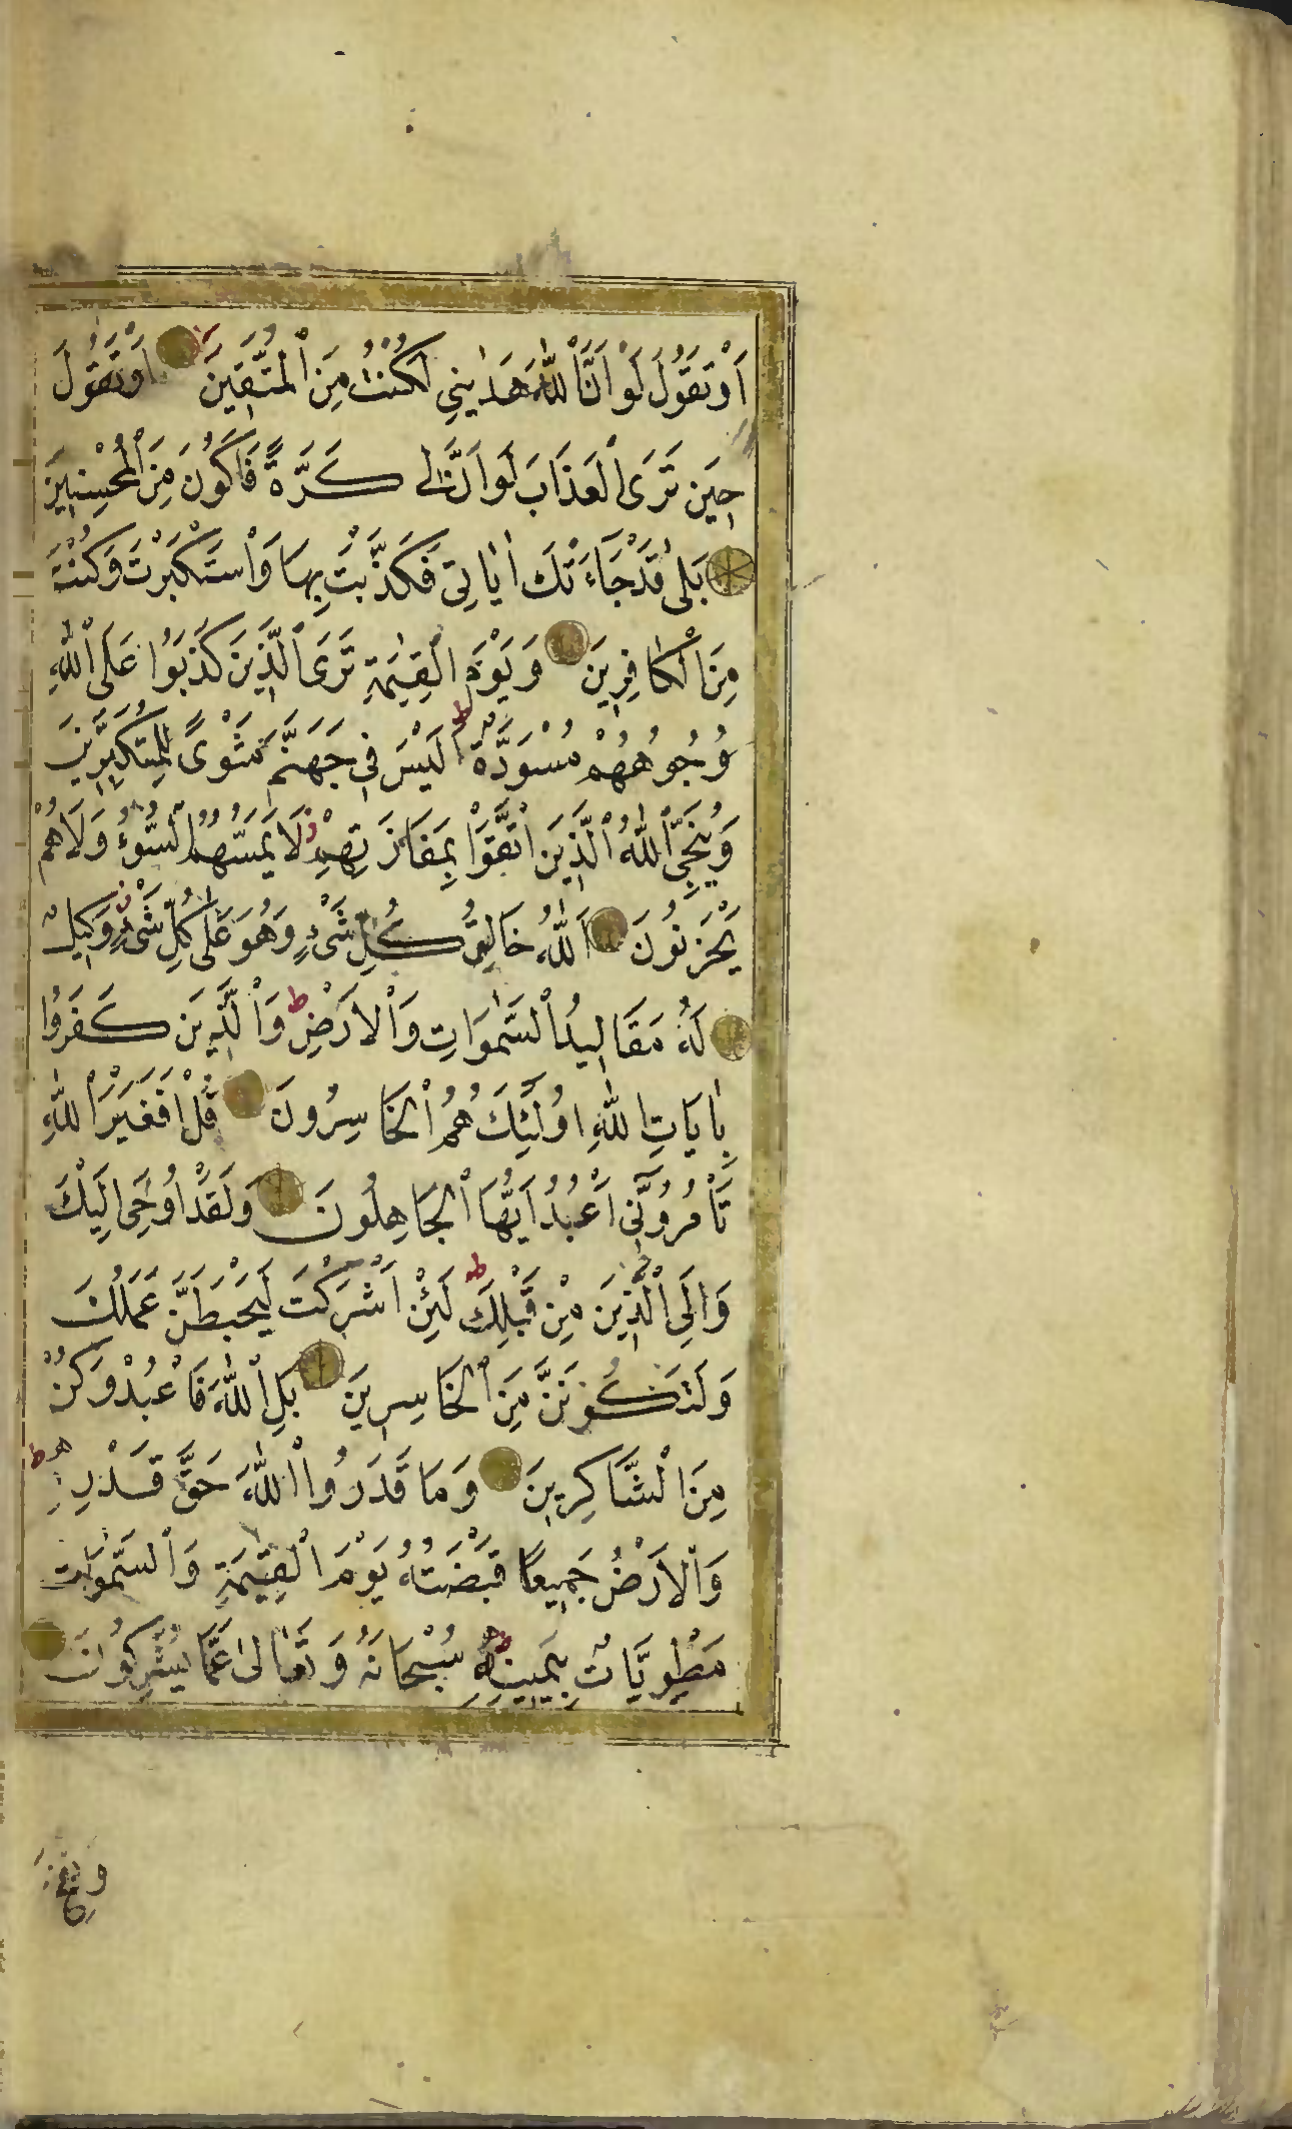 اَوْ تَقُولَ لَوْ اَنَّ اللّٰهَ هَدٰينِي لَكُنْتُ مِنَ الْمُتَّقِينَ اَوْ تَقُولَ
حِينَ تَرَى الْعَذَابَ لَوْ اَنَّ لِي كَرَّةً فَاَكُونَ مِنَ الْمُحْسِنِينَ
بَلٰى قَدْ جَاءَتْكَ اٰيَاتِي فَكَذَّبْتَ بِهَا وَاسْتَكْبَرْتَ وَكُنْتَ
مِنَ الْكَافِرِينَ وَيَوْمَ الْقِيٰمَةِ تَرَى الَّذِينَ كَذَبُوا عَلَى اللّٰهِ
وُجُوهُهُمْ مُسْوَدَّةٌ ط اَلَيْسَ فِي جَهَنَّمَ مَثْوًى لِلْمُتَكَبِّرِينَ
وَيُنَجِّي اللّٰهُ الَّذِينَ اتَّقَوْا بِمَفَازَتِهِمْ ز لَا يَمَسُّهُمُ السُّوءُ وَلَا هُمْ
يَحْزَنُونَ اَللّٰهُ خَالِقُ كُلِّ شَيْءٍ وَهُوَ عَلٰى كُلِّ شَيْءٍ وَكِيلٌ
لَهُ مَقَالِيدُ السَّمٰوَاتِ وَالْاَرْضِ ط وَالَّذِينَ كَفَرُوا
بِاٰيَاتِ اللّٰهِ اُولٰئِكَ هُمُ الْخَاسِرُونَ قُلْ اَفَغَيْرَ اللّٰهِ
تَأْمُرُونِّي اَعْبُدُ اَيُّهَا الْجَاهِلُونَ وَلَقَدْ اُوحِيَ اِلَيْكَ
وَاِلَى الَّذِينَ مِنْ قَبْلِكَ ط لَئِنْ اَشْرَكْتَ لَيَحْبَطَنَّ عَمَلُكَ
وَلَتَكُونَنَّ مِنَ الْخَاسِرِينَ بَلِ اللّٰهَ فَاعْبُدْ وَكُنْ
مِنَ الشَّاكِرِينَ وَمَا قَدَرُوا اللّٰهَ حَقَّ قَدْرِهِ ط
وَالْاَرْضُ جَمِيعًا قَبْضَتُهُ يَوْمَ الْقِيٰمَةِ وَالسَّمٰوَاتُ
مَطْوِيَّاتٌ بِيَمِينِهِ ط سُبْحَانَهُ وَتَعَالٰى عَمَّا يُشْرِكُونَ
وَنُفِخَ